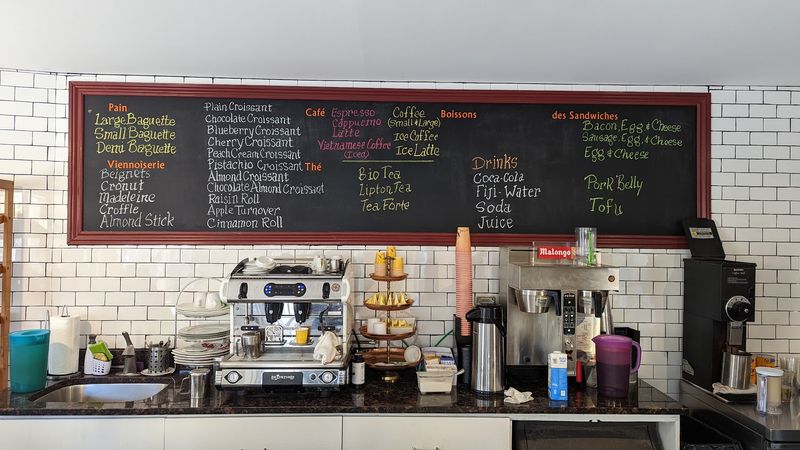 Pain
Large Baguette
Small Baguette
Demi Baguette
Viennoiserie
Beignets
Cronut
Madeleine
Croffle
Almond Stick
Plain Croissant
Chocolate Croissant
Blueberry Croissant
Cherry Croissant
Peach Cream Croissant
Pistachio Croissant
Almond Croissant
Chocolate Almond Croissant
Raisin Roll
Apple Turnover
Cinnamon Roll
Café
Espresso
Cappucino
Latte
Vietnamese Coffee
(Iced)
Coffee
(Small & Large)
Ice Coffee
Ice Latte
Thé
Bio Tea
Lipton Tea
Tea Forte
Boissons
Drinks
Coca-Cola
Fiji-Water
Soda
Juice
des Sandwiches
Bacon, Egg, & Cheese
Sausage, Egg, & Cheese
Egg & Cheese
Pork Belly
Tofu
Malongo